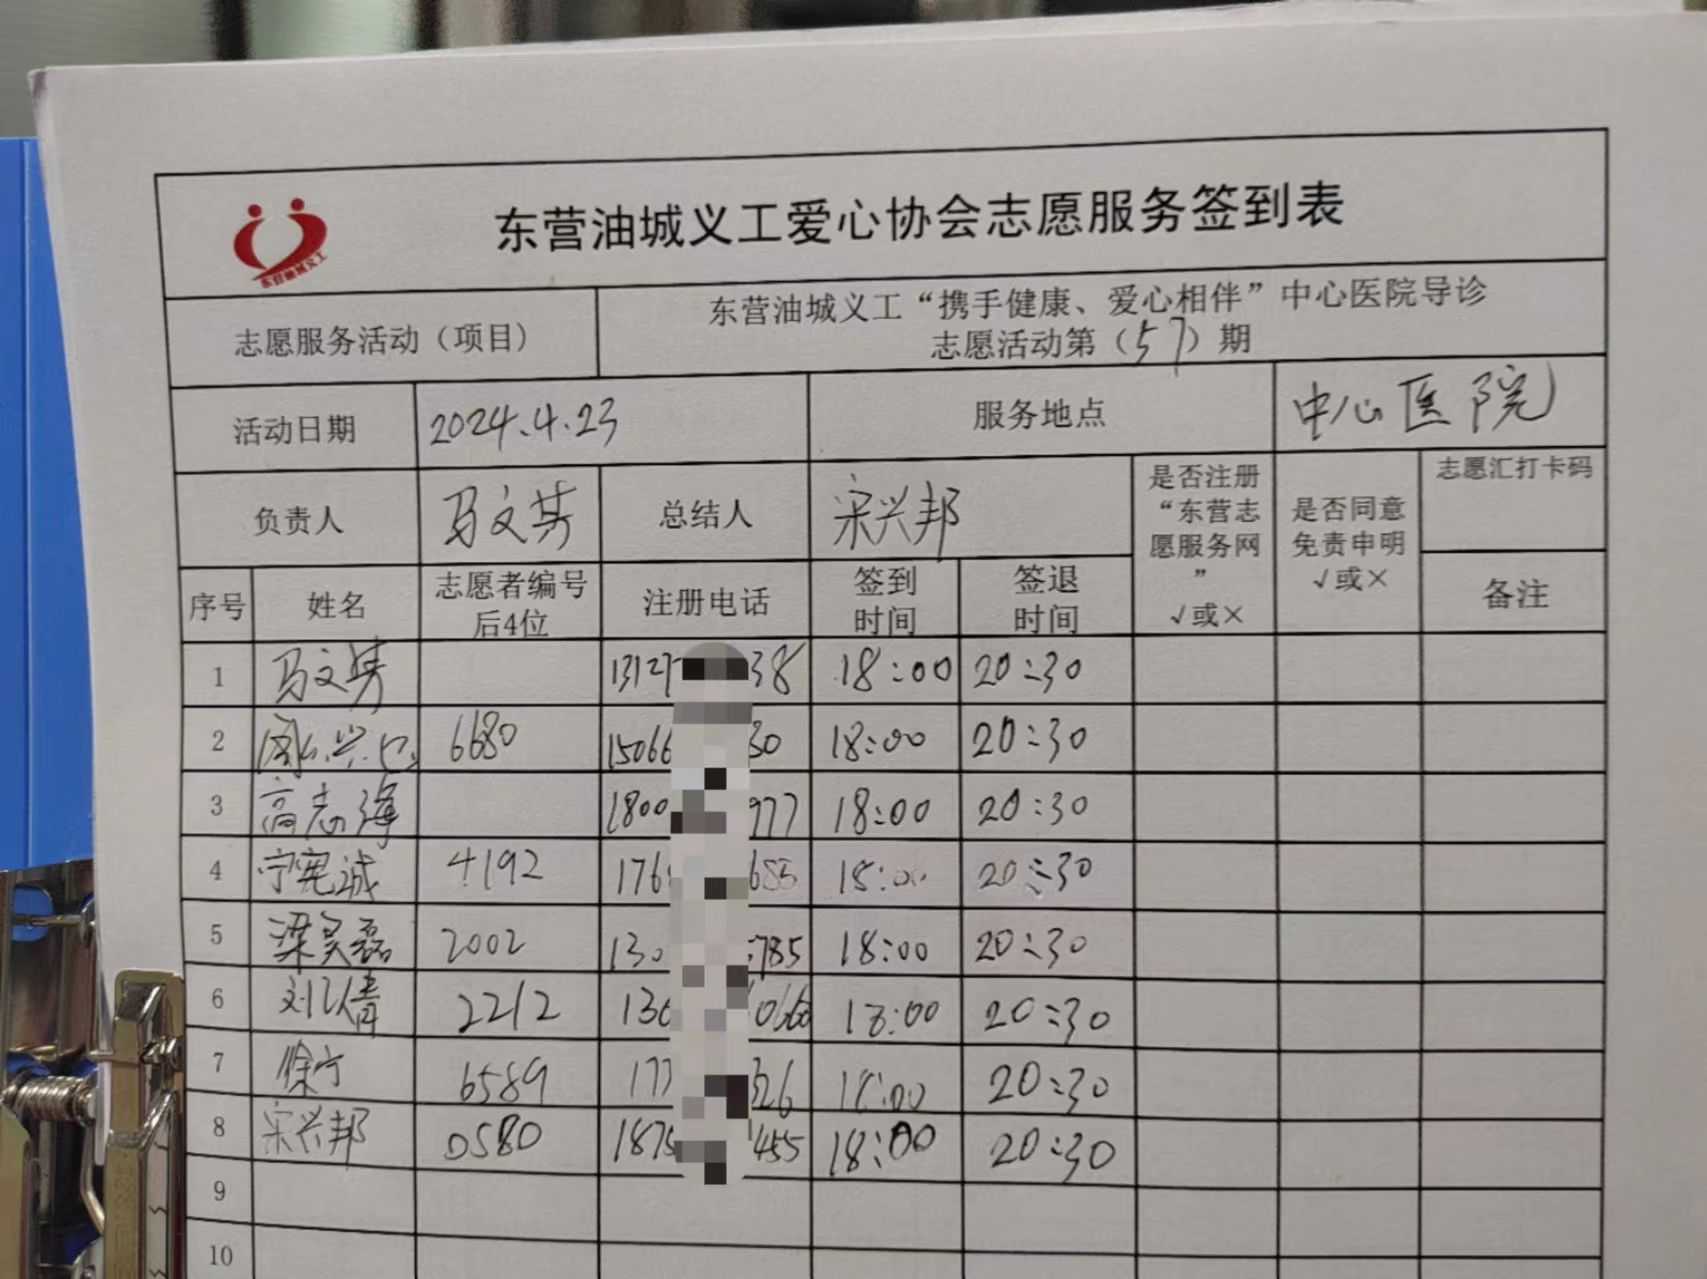 东营油城义工
东营油城义工爱心协会志愿服务签到表
志愿服务活动（项目）
东营油城义工“携手健康、爱心相伴”中心医院导诊
志愿活动第（57）期
活动日期 2024.4.23 服务地点 中心医院
负责人 马文 总结人 宋兴邦
是否注册
“东营志
愿服务网
”
√或×
是否同意
免责申明
√或×
志愿汇打卡码
备注
序号 姓名
志愿者编号
后4位
注册电话
签到
时间
签退
时间
1 马文 13127 38 18:00 20:30
2 6680 15066 30 18:00 20:30
3 高志海 1800 977 18:00 20:30
4 宁宪诚 4192 176 655 18:00 20:30
5 梁昊磊 2002 130 785 18:00 20:30
6 刘倩 2212 130 066 18:00 20:30
7 徐宁 6589 177 326 18:00 20:30
8 宋兴邦 0580 1875 455 18:00 20:30
9
10